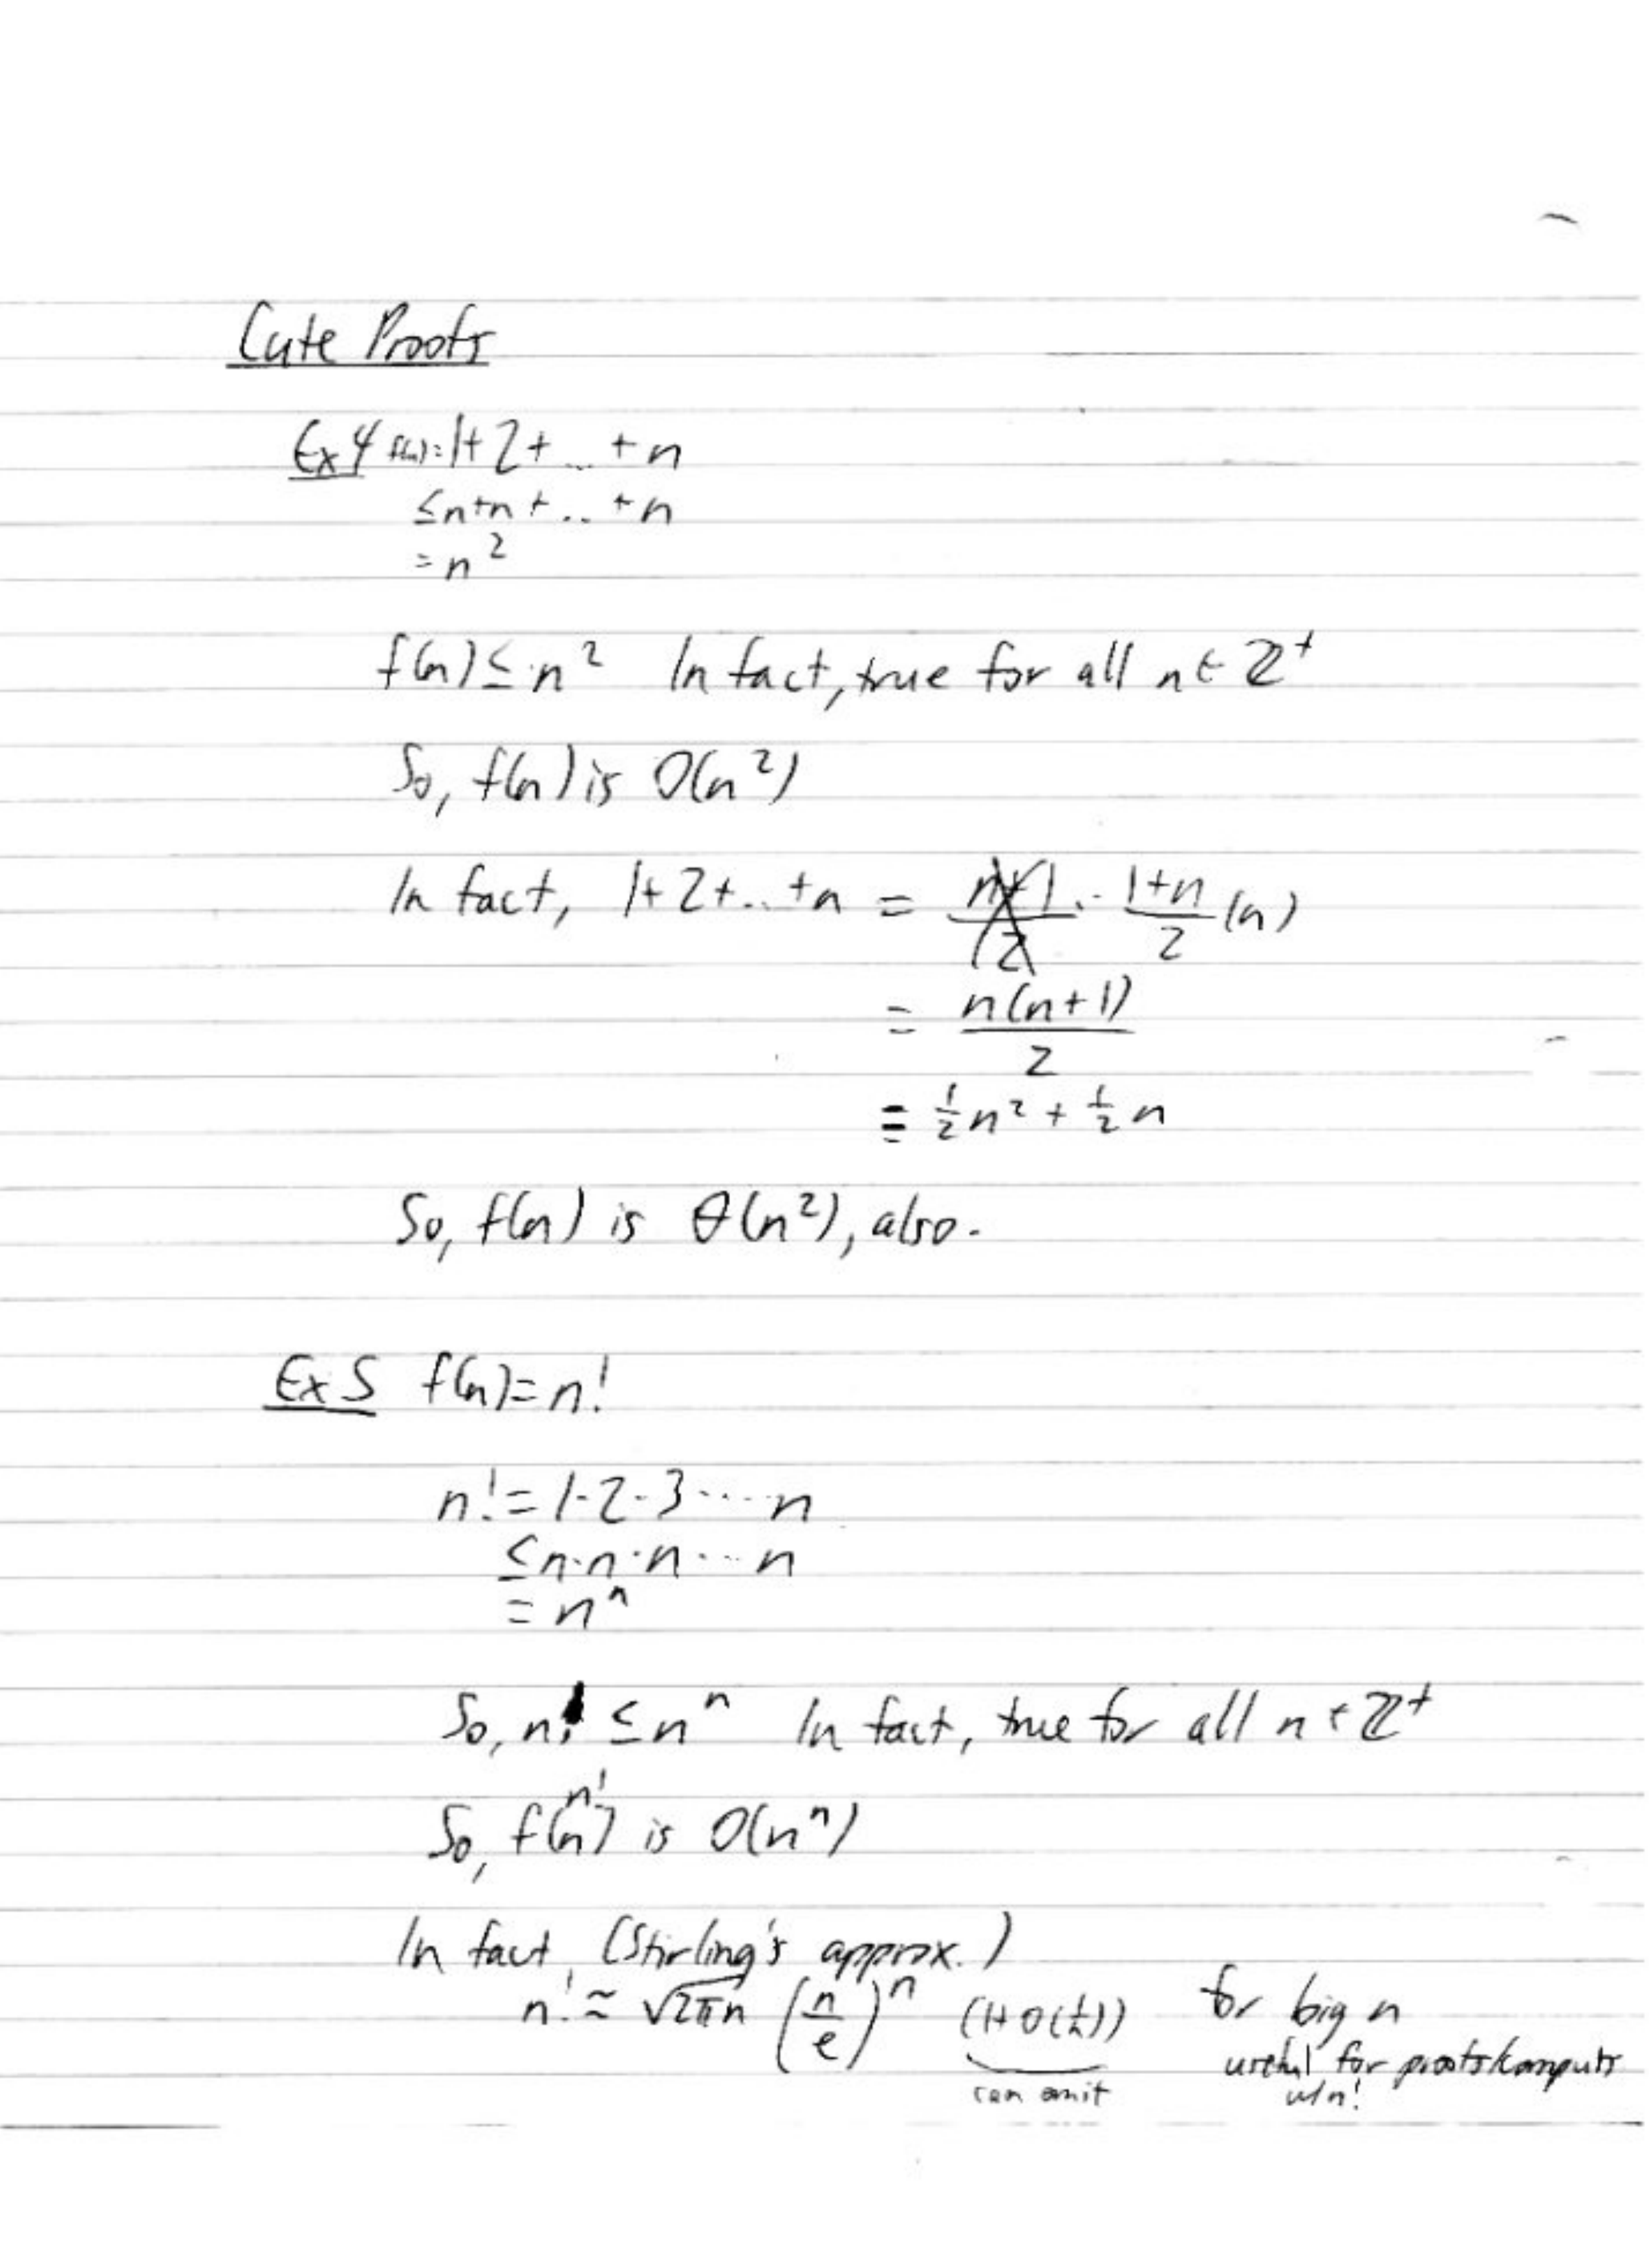 Cute Proofs
Ex 4 f(n)=1+2+...+n
≤n+n+...+n
=n²
f(n)≤n² In fact, true for all n∈ℤ⁺
So, f(n) is O(n²)
In fact, 1+2+...+n = (1+n)/2 (n)
= n(n+1)/2
= ½n² + ½n
So, f(n) is θ(n²), also.
Ex 5 f(n)=n!
n!=1·2·3···n
≤n·n·n···n
=nⁿ
So, n! ≤nⁿ In fact, true for all n∈ℤ⁺
n!
So, f(n) is O(nⁿ)
In fact, (Stirling's approx.)
n! ≈ √2πn (n/e)ⁿ (1+O(1/n)) for big n
can omit useful for proofs/comput's
w/n!